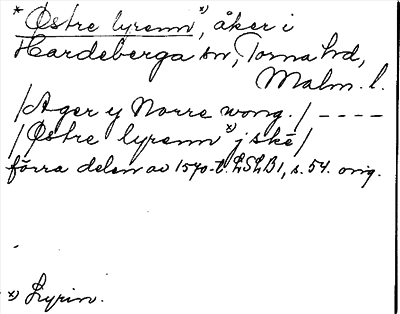 * Östre lyrenn x), åker i
Hardeberga sn, Torna hd,
Malm. l.
/Ager y Norre wong./ ----
/Östre lyrenn x) j skē/
förra delen av 1570-t. LSLB1, s. 54. orig.
x) Lyrin.